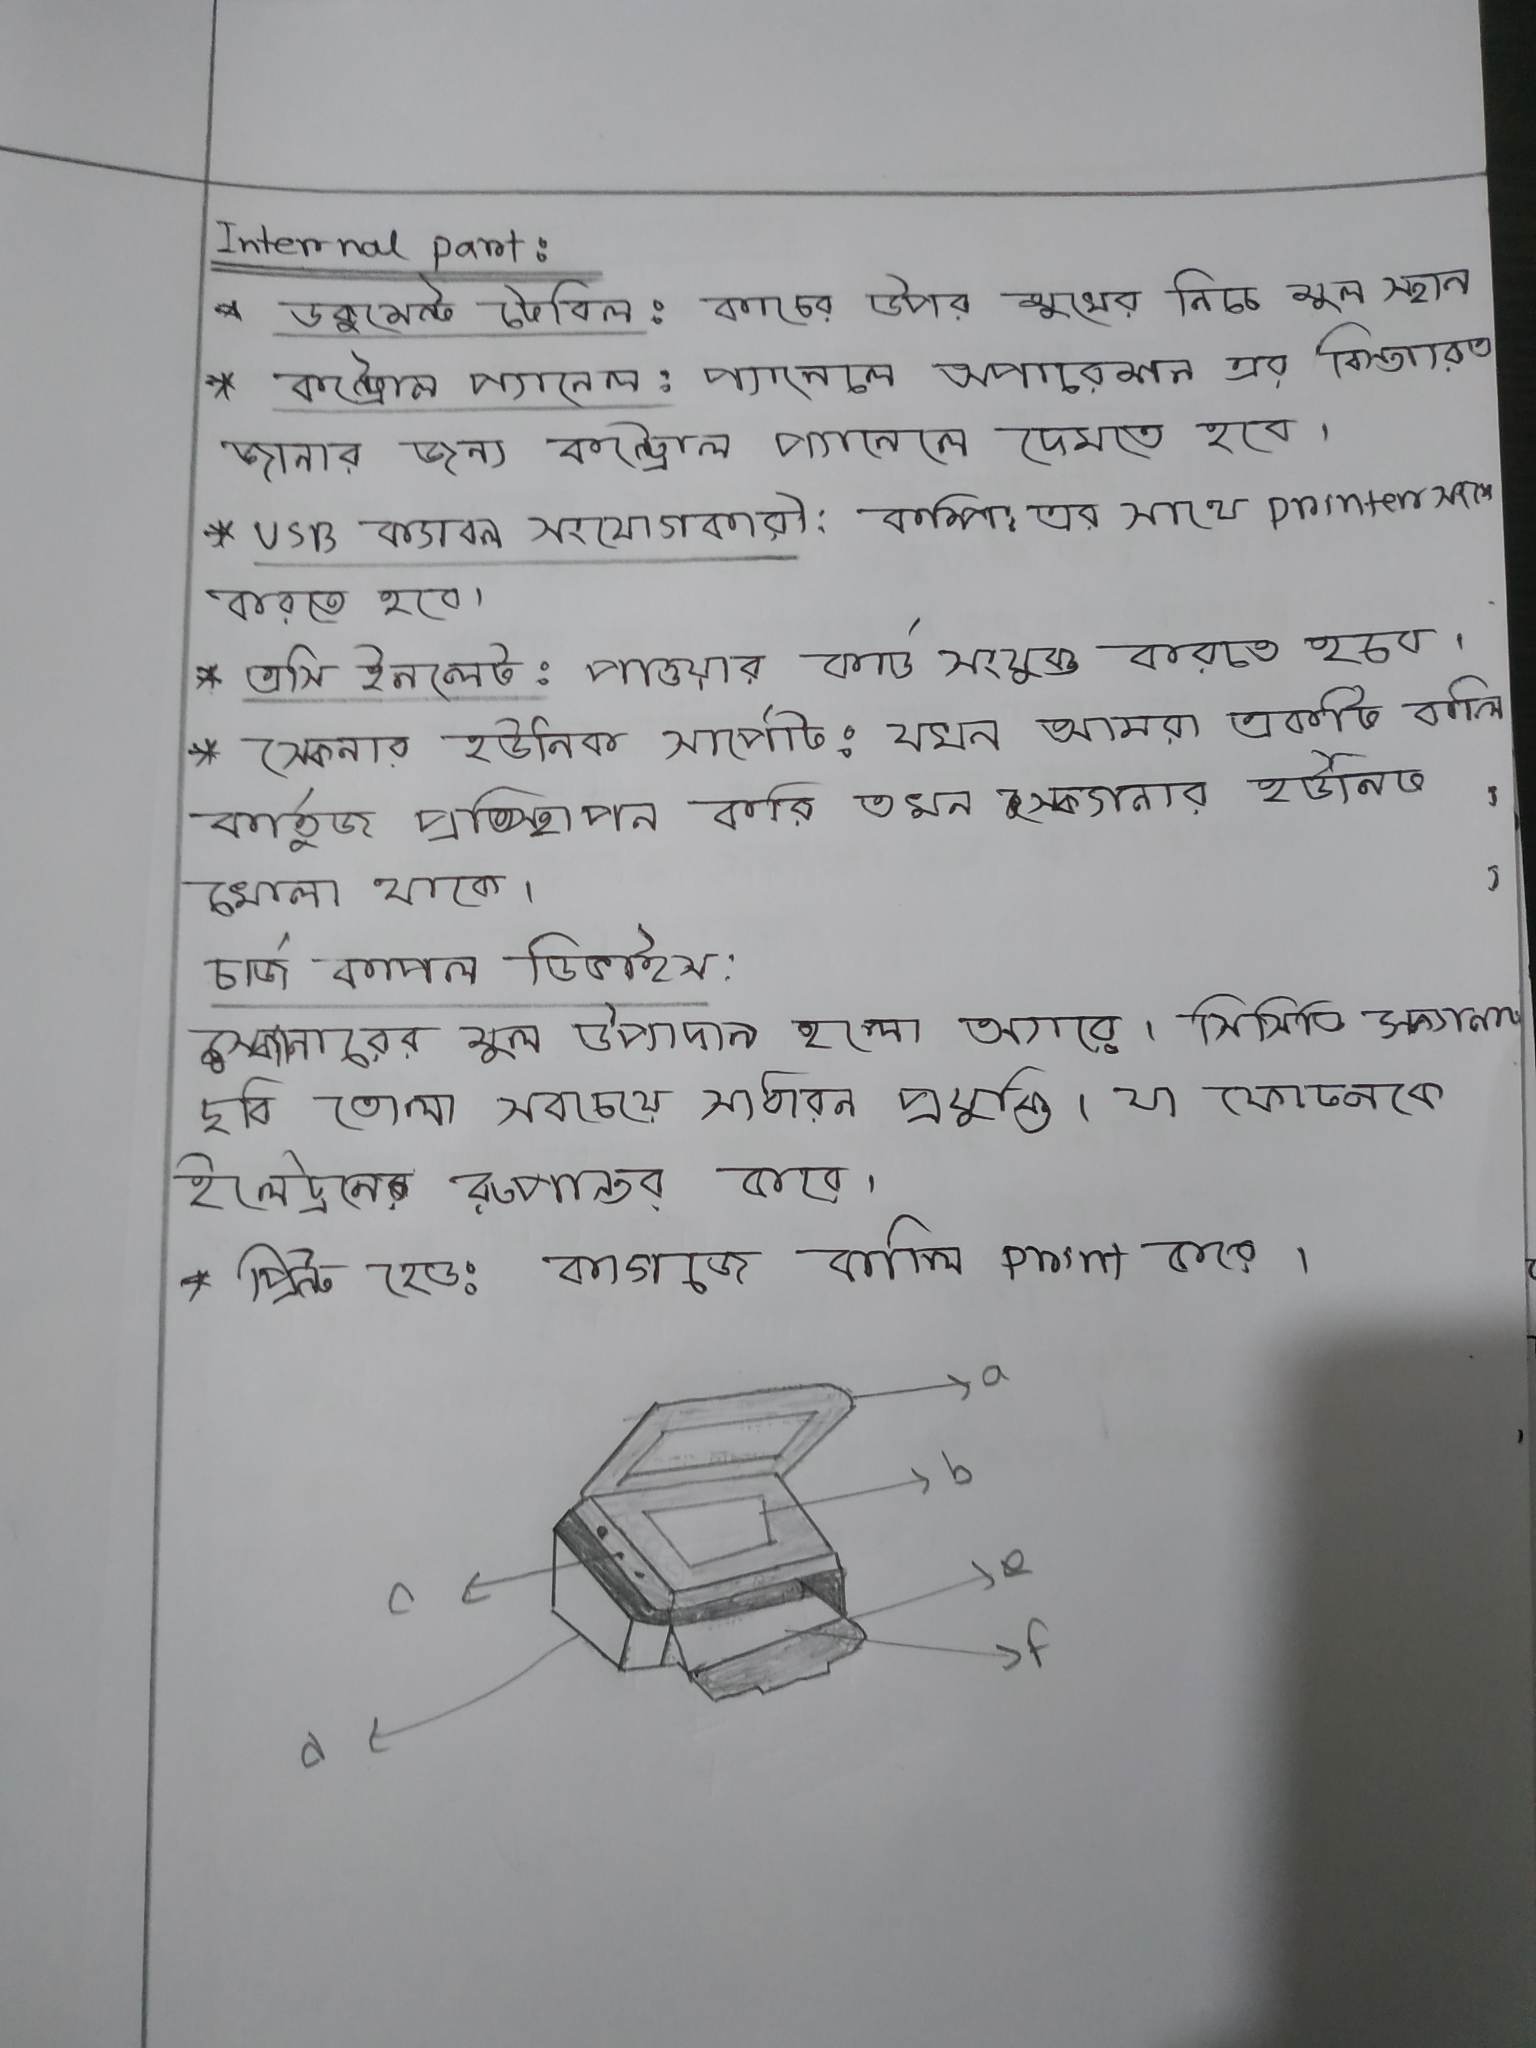 Internal part:
* ডকুমেন্ট টেবিল: কাচের উপর মুখের নিচে মূল স্থান
* কন্ট্রোল প্যানেল: প্যানেলে অপারেশন এর বিস্তারিত
জানার জন্য কন্ট্রোল প্যানেলে দেখতে হবে।
* USB ক্যাবল সংযোগকারী: কম্পি: এর সাথে printer সংযোগ
করতে হবে।
* এসি ইনলেট: পাওয়ার কার্ড সংযুক্ত করতে হবে।
* স্কেনার ইউনিক সার্পোট: যখন আমরা একটি কালি
কার্তুজ প্রতিস্থাপন করি তখন স্ক্যানার ইউনিট
খোলা থাকে।
চার্জ কাপল ডিভাইস:
স্ক্যানারের মূল উপাদান হলো অ্যারে। সিসিডি স্ক্যানার
ছবি তোলা সবচেয়ে সাধারন প্রযুক্তি। যা ফোটনকে
ইলেট্রনের রূপান্তর করে।
* প্রিন্ট হেড: কাগজে কালি print করে।
a
b
c
e
f
d